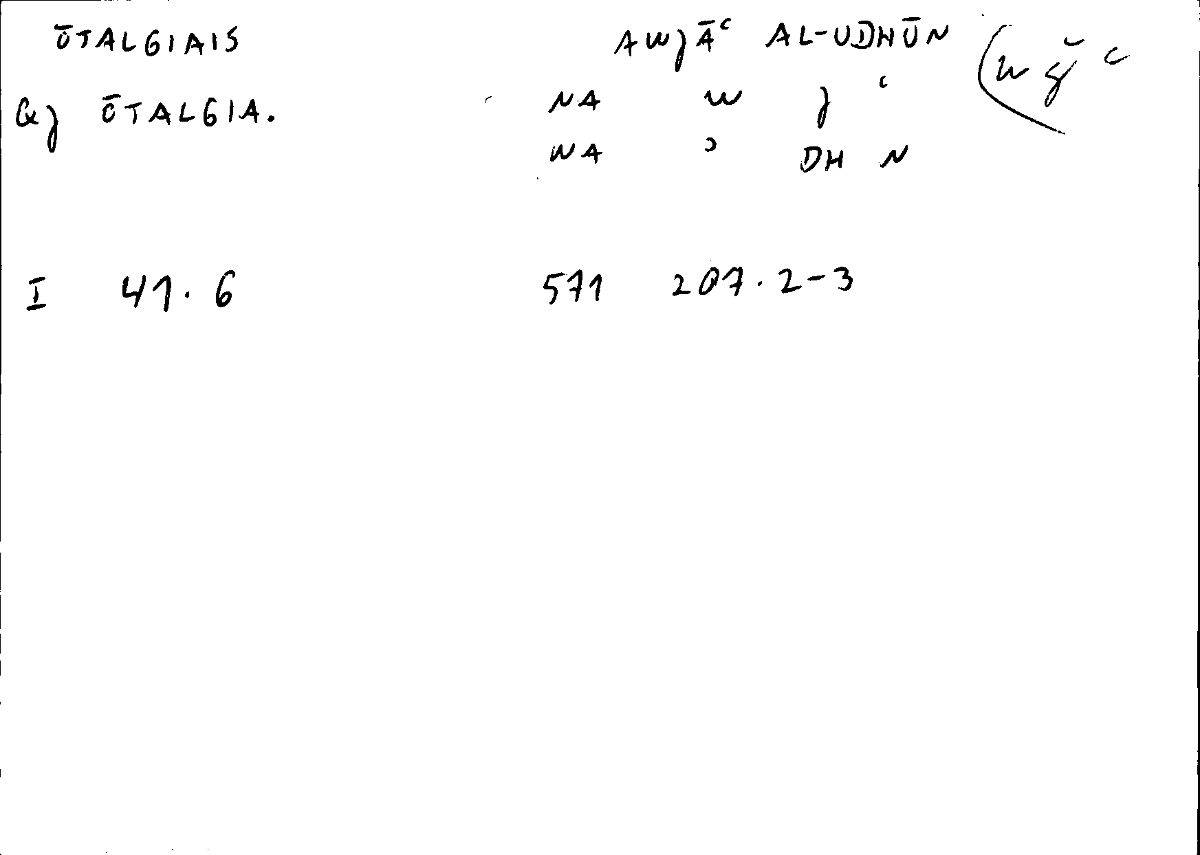 ŌTALGIAIS AWJĀʿ AL-UDHŪN (w ǧ ʿ
GJ ŌTALGIA. NA W J ʿ
WA ʾ DH N
I 41.6 571 207.2-3